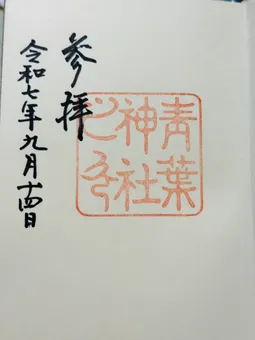 青葉
神社
之印
参拝
令和七年九月十四日